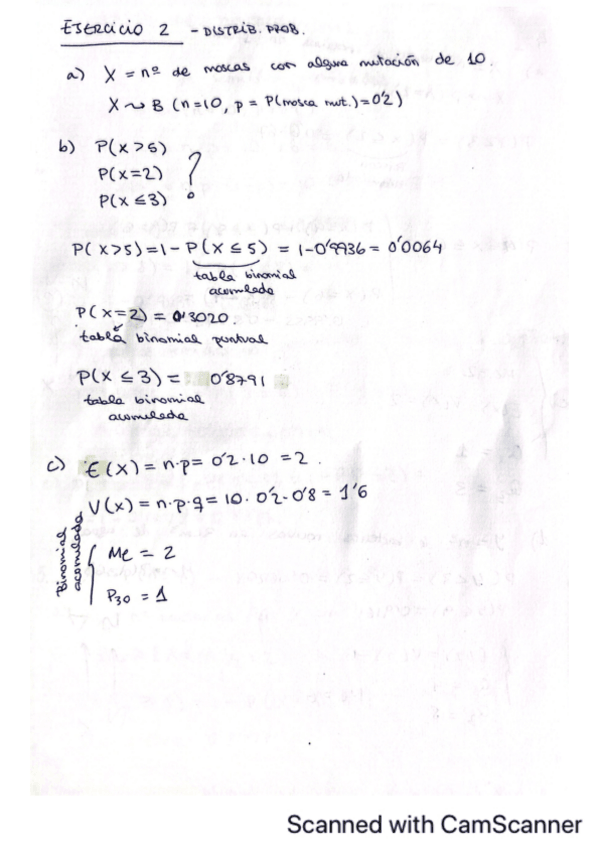 EJERCICIO 2 - DISTRIB. PROB.
a) X = nº de moscas con alguna mutación de 10.
X ~ B (n=10, p = P(mosca mut.)=0'2)
b) P(X>5)
P(X=2)
P(X≤3) ?
P(X>5)=1-P(X≤5) = 1-0'9936 = 0'0064
tabla binomial
acumulada
P(X=2) = 0'3020.
tabla binomial puntual
P(X≤3) = 0'8791
tabla binomial
acumulada
c) E(X) = n·p = 0'2·10 = 2.
V(X) = n·p·q = 10·0'2·0'8 = 1'6
binomial
acumulada
Me = 2
P30 = 1
Scanned with CamScanner